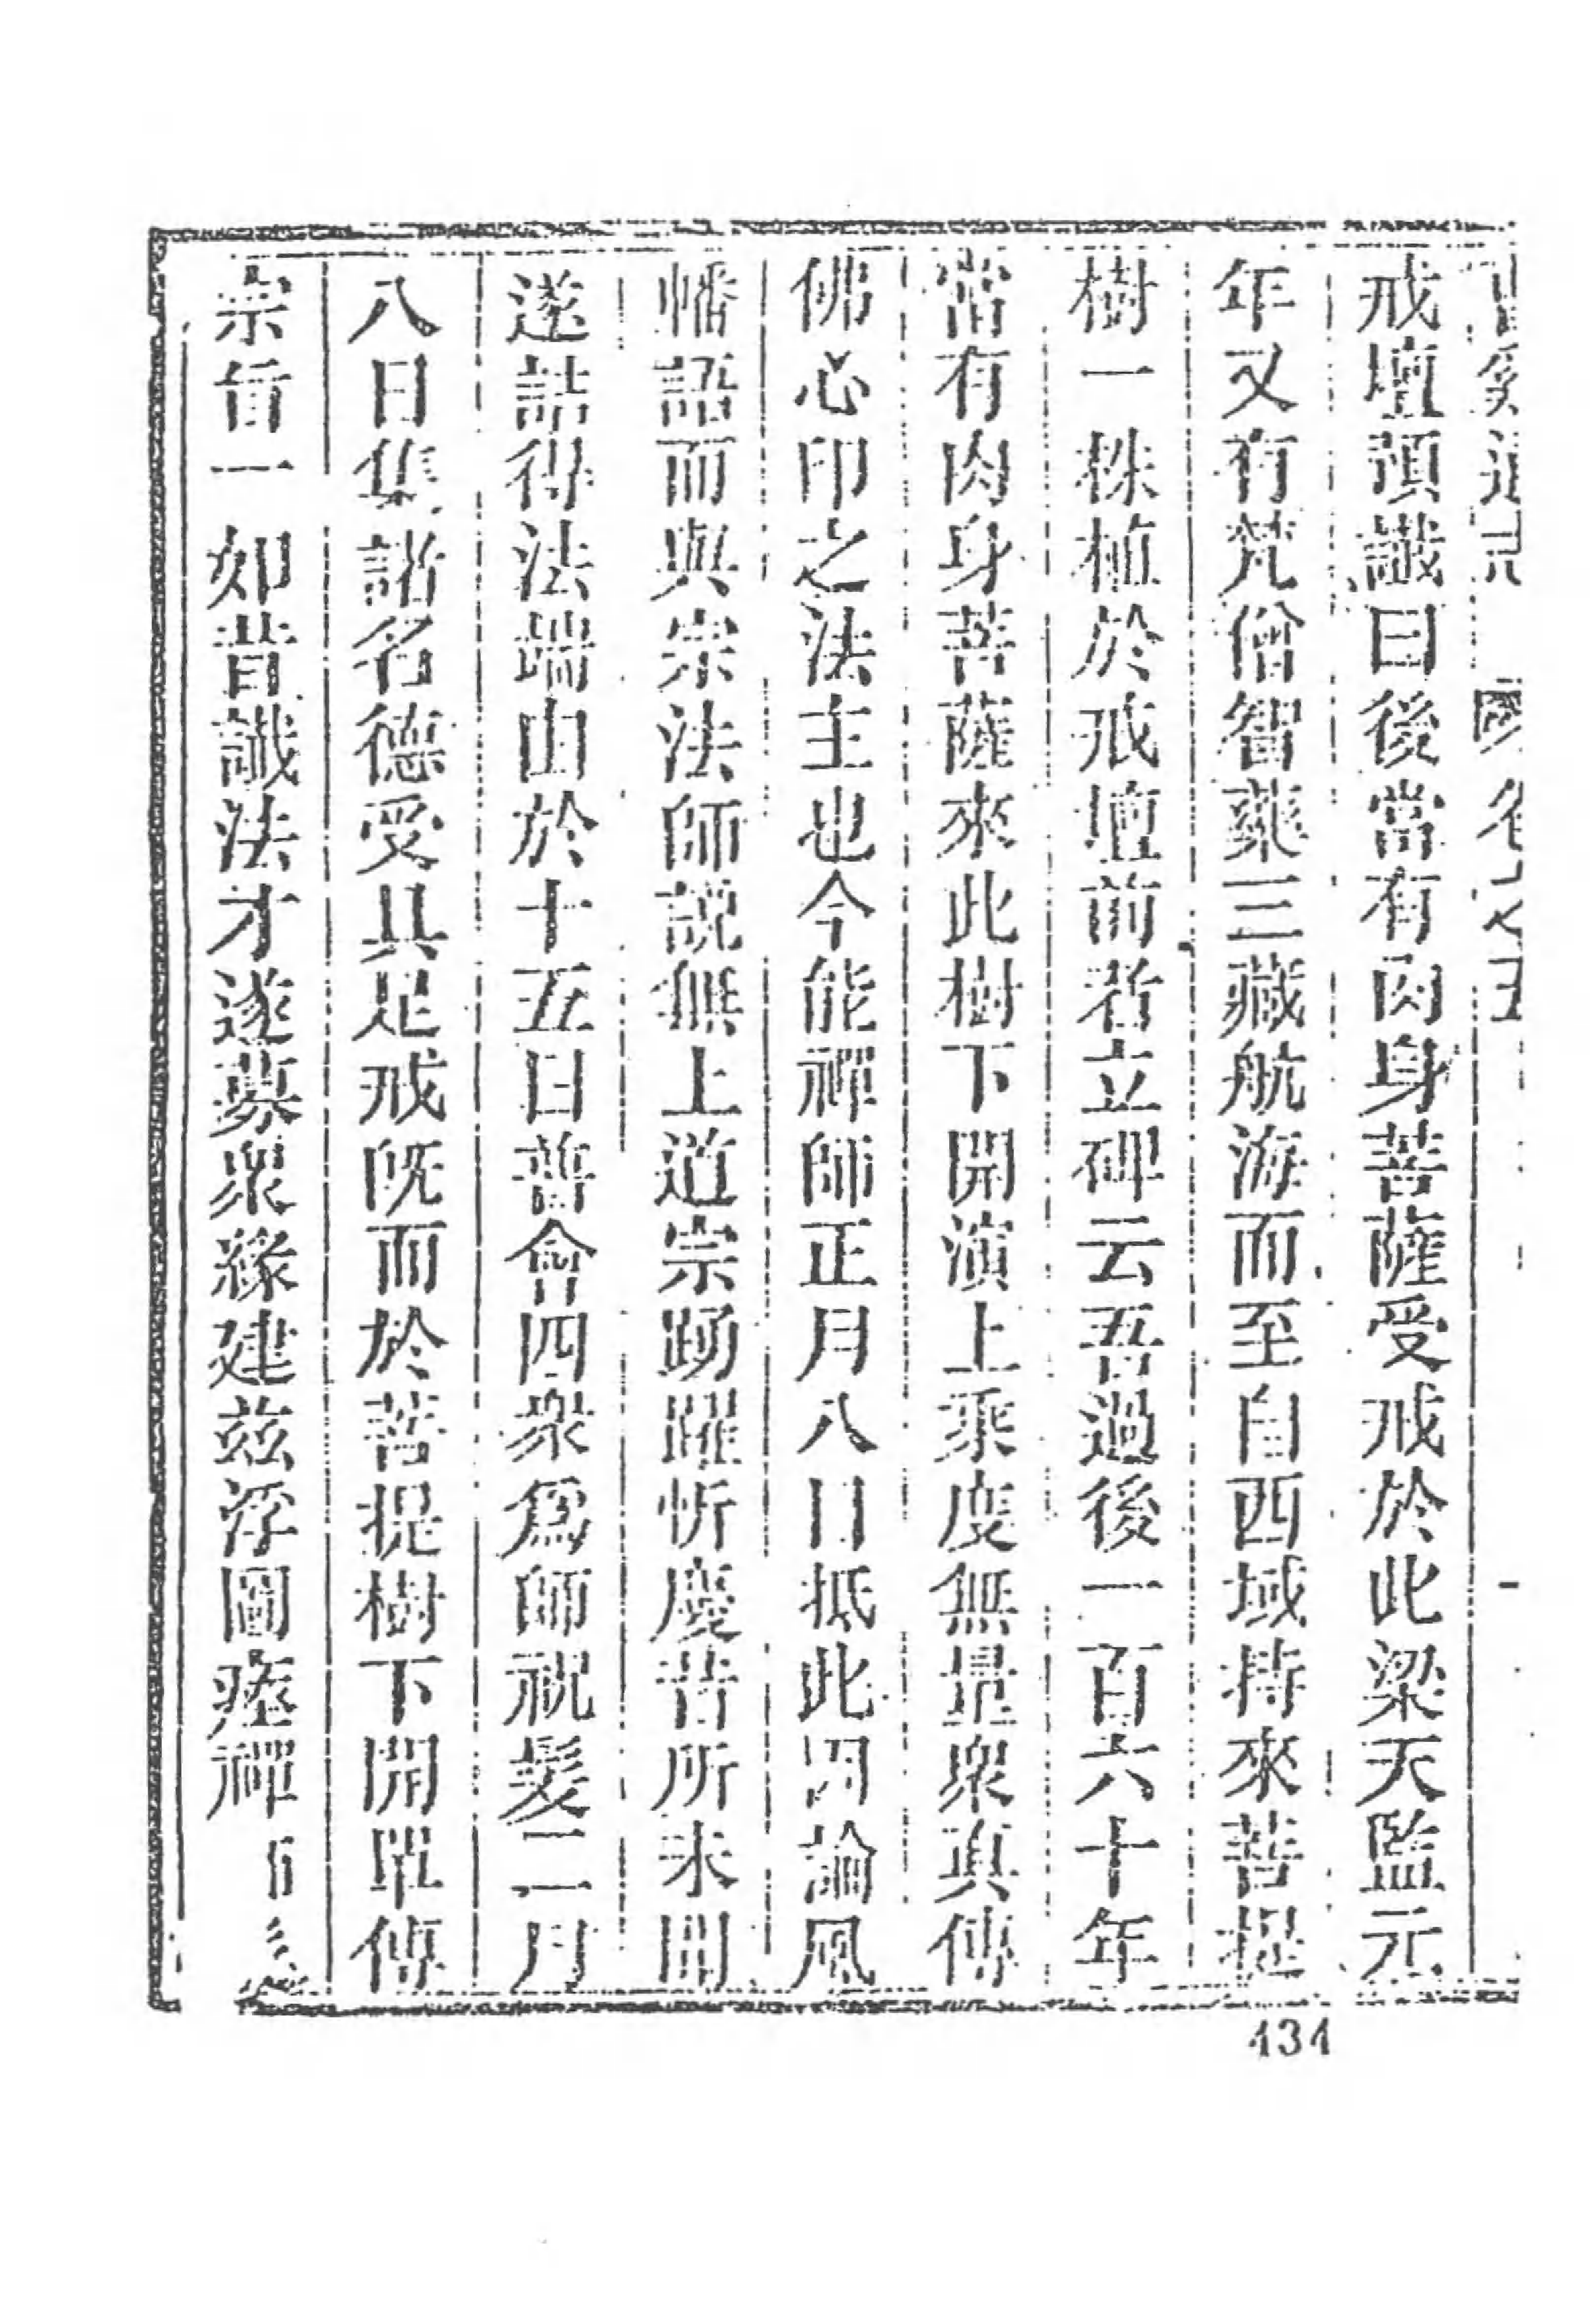 戒壇預讖曰後當有肉身菩薩受戒於此梁天監元
年又有梵僧智藥三藏航海而至自西域持來菩提
樹一株植於戒壇前者立碑云吾過後一百六十年
當有肉身菩薩來此樹下開演上乘度無量衆真傳
佛心印之法主也今能禪師正月八日抵此因論風
幡語而與宗法師說無上道宗踴躍忻慶昔所未聞
遂詰得法端由於十五日普會四衆爲師祝髮二月
八日集諸名德受具足戒既而於菩提樹下開單傳
宗旨一如昔讖法才遂募衆緣建茲浮圖瘞禪
131